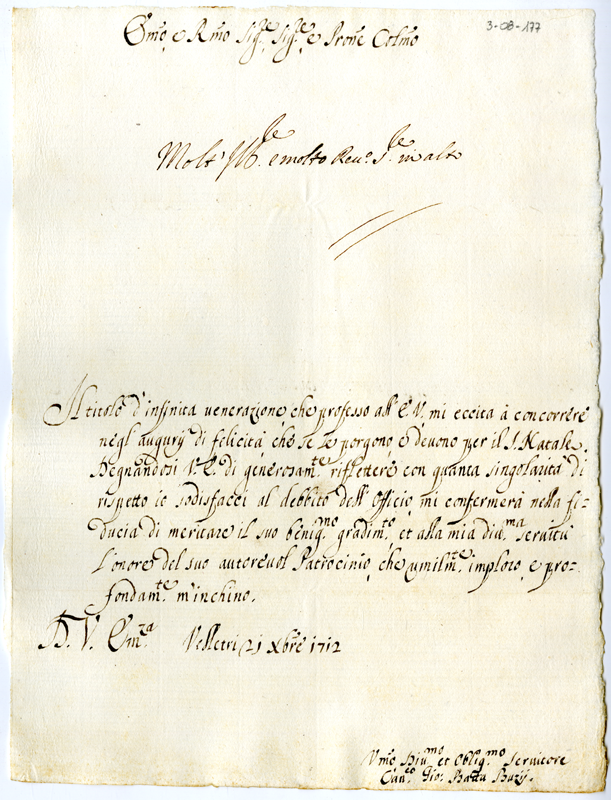 3-08-177
Em̃o, e Rm̃o Sig.re Sig.re e Pron̄e Colm̃o
Molt' Ill.re e molto Reu.o S.re in alto
Il titolo d'infinita uenerazione che professo all' E.V. mi eccita à concorrere
negl' augurÿ di felicità, che se Le porgono, e deuono per il S. Natale.
Degnandosi V.E. di generosam.te riflettere con quanta singolarità di
rispetto io sodisfacci al debbito dell' Officio, mi confermerà nella fi-
ducia di meritare il suo benig.mo gradim.to, et alla mia diu.ma seruitù
L'onore del suo autoreuol Patrocinio, che umilm.te imploro, e pro-
fondam.te m'inchino.
D. V. Em.za Velletri 21 Xbre 1712
Vm̃o Diu.mo et Oblig.mo Seruitore
Can.co Gio: Batta Buzÿ.